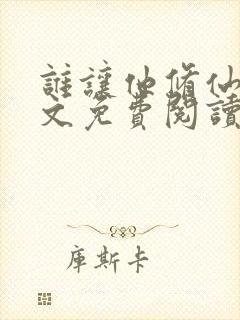 誰讓他修仙
文免費閱讀
庫斯卡